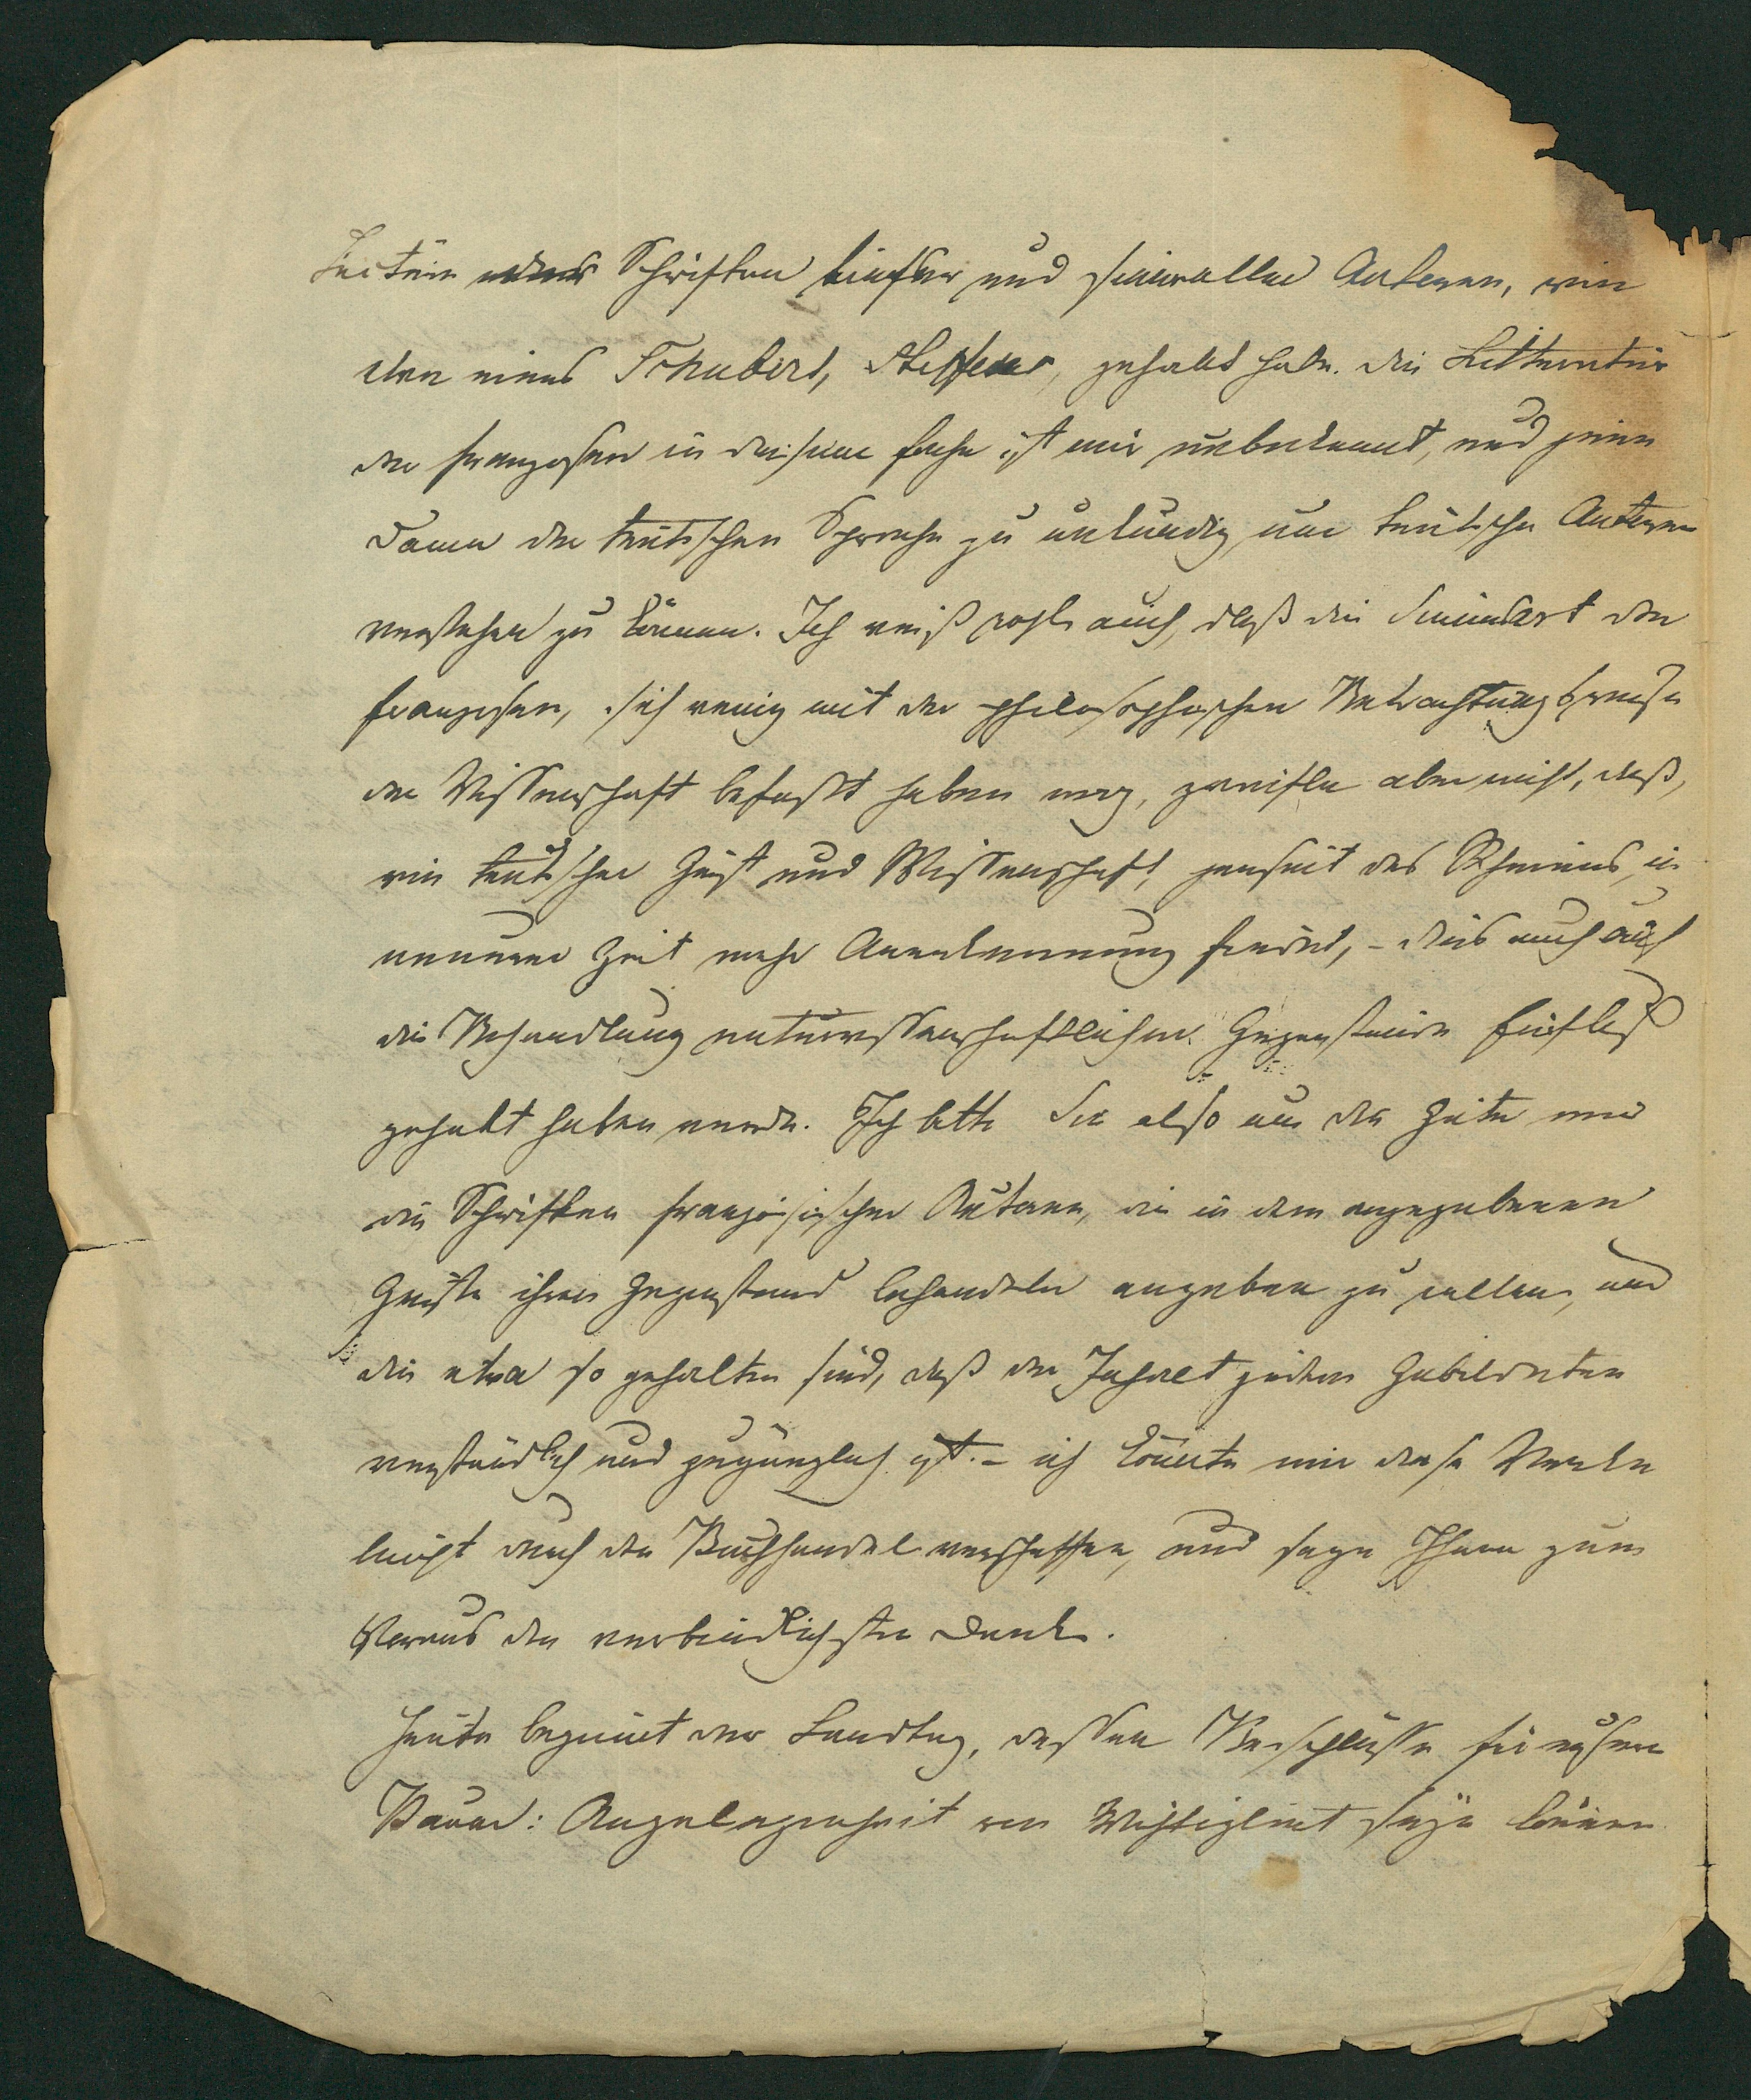 Lectüre Schriften tiefer und sinnvoller Autoren, wie
etwa eines Schubert, Steffens, gehabt habe. Die Litteratur
der Franzosen in diesem Fache ist mir unbekannt, und jene
Dame der teutschen Sprache zu unkundig, um teutsche Autoren
verstehen zu können. Ich weiß wohl auch, daß die Sinnesart der
Franzosen, sich wenig mit der philosophischen Betrachtungsweise
der Wissenschaft befaßt haben mag, zweifle aber nicht, daß,
wie teutscher Geist und Wissenschaft, jenseit des Rheines, in
neuerer Zeit mehr Anerkennung findet, – dies auch auf
die Behandlung naturwissenschaftlicher Gegenstände Einfluß
gehabt haben werde. Ich bitte Sie also um die Güte mir
die Schriften französischer Autoren, die in dem angegebenen
Geiste ihren Gegenstand behandeln angeben zu wollen, und
die etwa so gehalten sind, daß der Inhalt jedem Gebildeten
verständlich und zugänglich ist. – ich könnte mir diese Werke
leicht durch den Buchhandel verschaffen, und sage Ihnen zum
Voraus den verbindlichsten Dank.
Heute beginnt der Landtag, dessen Beschlüsse für unsere
Bauer: Angelegenheit von Wichtigkeit seyn können